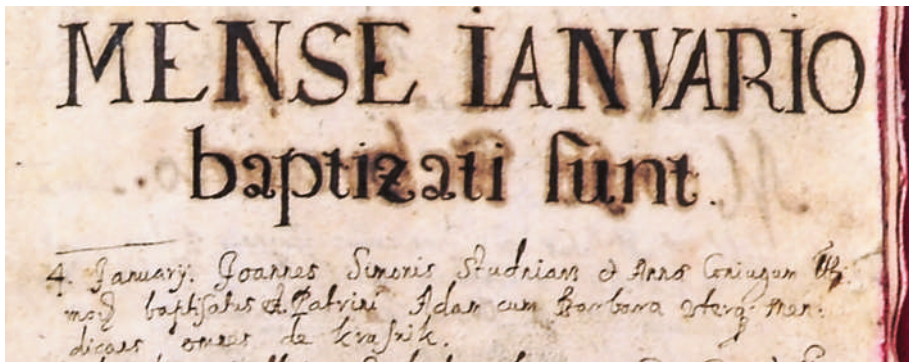 MENSE IANVARIO
baptizati sunt.
4. January. Joannes Simonis Studnian et Anna Coniugum
baptisatus est. Patrini Adam cum Barbara uterq men:
dicans omnes de Krasnik.